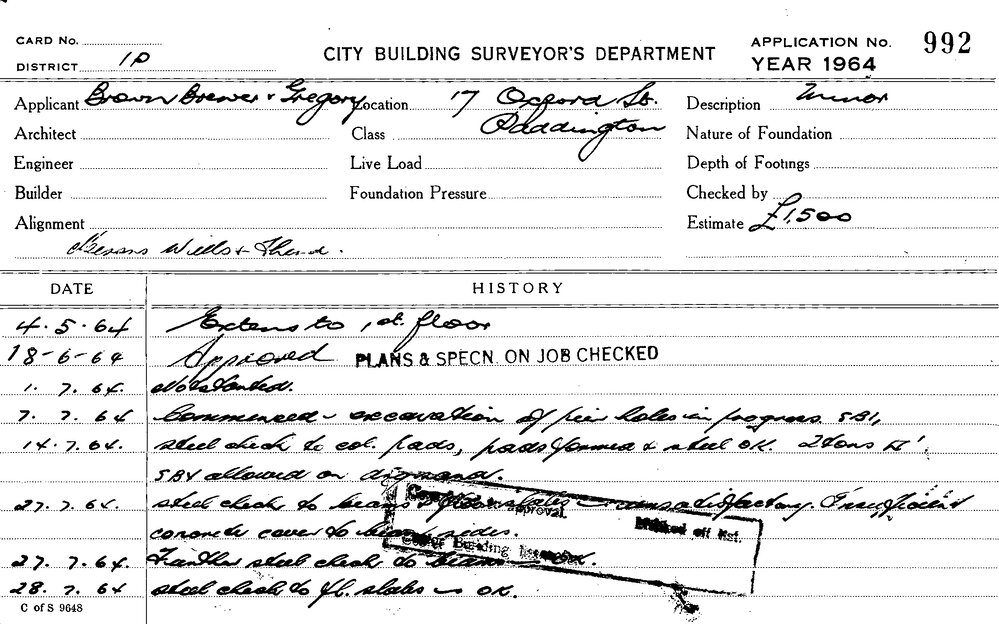 CARD No.
DISTRICT 1P
CITY BUILDING SURVEYOR'S DEPARTMENT
APPLICATION No. 992
YEAR 1964
Applicant Brown Brewer & Gregory Location 17 Oxford St. Description Minor
Architect Class Paddington Nature of Foundation
Engineer Live Load Depth of Footings
Builder Foundation Pressure Checked by
Alignment Estimate £1,500
Wills &
DATE HISTORY
4.5.64 Extens to 1st. floor
18-6-64 Approved PLANS & SPECN. ON JOB CHECKED
1. 7. 64. Not started.
7. 7. 64 Commenced - excavation of pier holes in progress. SBI,
14.7.64. steel check to col. pads, pads formed & steel OK. 2 tons
allowed on
27.7.64. steel check to beams & floor slabs - unsatisfactory. Insufficient
concrete cover to beam sides.
approval.
Marked off list.
Building
27. 7. 64. Further steel check to beams OK.
28. 7. 64 steel check to fl. slabs - OK.
C of S 9648